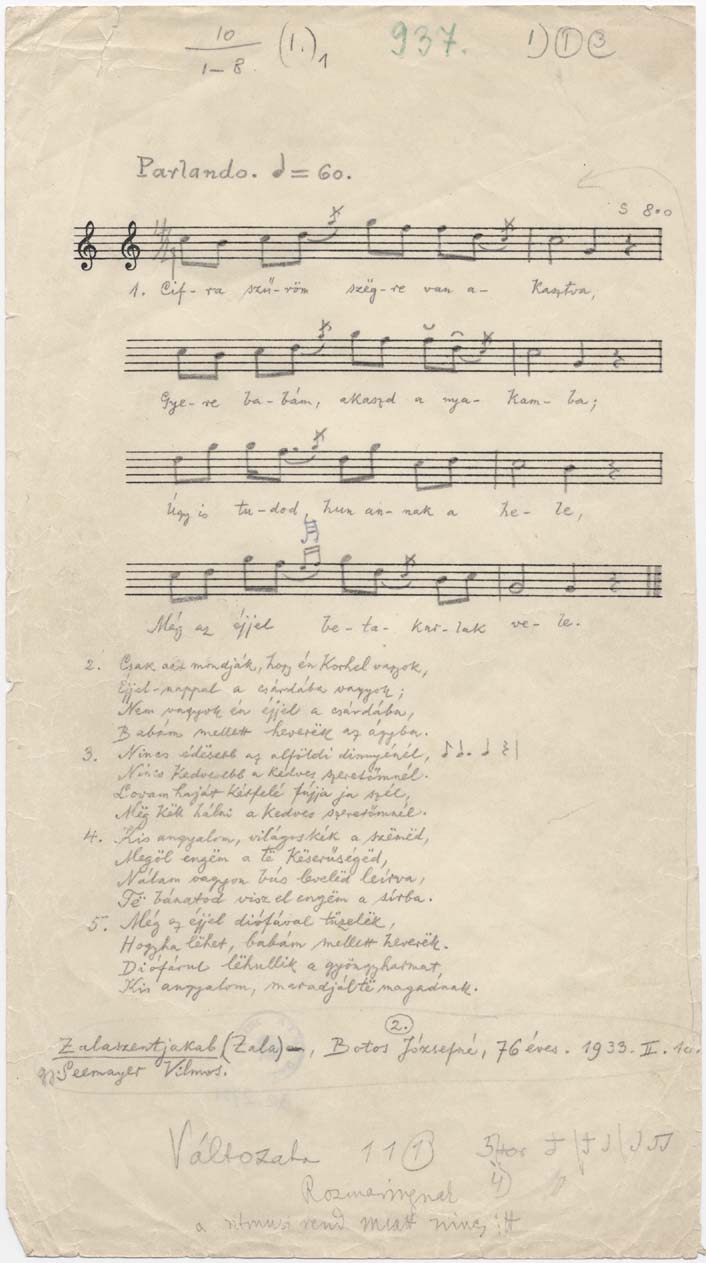 10
1–8. (1.)1 937. 1) ① 3
Parlando. ♩= 60.
S 8.0
1. Cif-ra szű-röm szëg-re van a- kasztva,
Gye-re ba-bám, akaszd a nya- kam- ba;
Úgy is tu-dod, hun an-nak a he- le,
Még az éjjel be-ta- kar-lak ve- le.
2. Csak azt mondják, hogy én korhel vagyok,
Éjjel-nappal a csárdába vagyok;
Nem vagyok én éjjel a csárdába,
Babám mellett heverëk az ágyba.
3. Nincs édësebb az alföldi dinnyénél,
Nincs kedvesebb a kedves szeretőmnél.
Lovam haját kétfelé fújja ja szél,
Még këll hálni a kedves szeretőmnél.
4. Kis angyalom, világoskék a szëmëd,
Megöl engëm a të keserűségëd,
Nálam vagyon bús levelëd leírva,
Të bánatod visz el engëm a sírba.
5. Még az éjjel diófával tüzelëk,
Hogyha lëhet, babám mellett heverëk.
Diófárul lëhullik a gyöngyharmat,
Kis angyalom, maradjál të magadnak.
2.
Zalaszentjakab (Zala) –, Botos Józsefné, 76 éves. 1933. II. 10.
gy: Seemayer Vilmos.
Változata 1 1 ①
Rozmaringnak 4)
a ritmusi rend miatt nincs itt